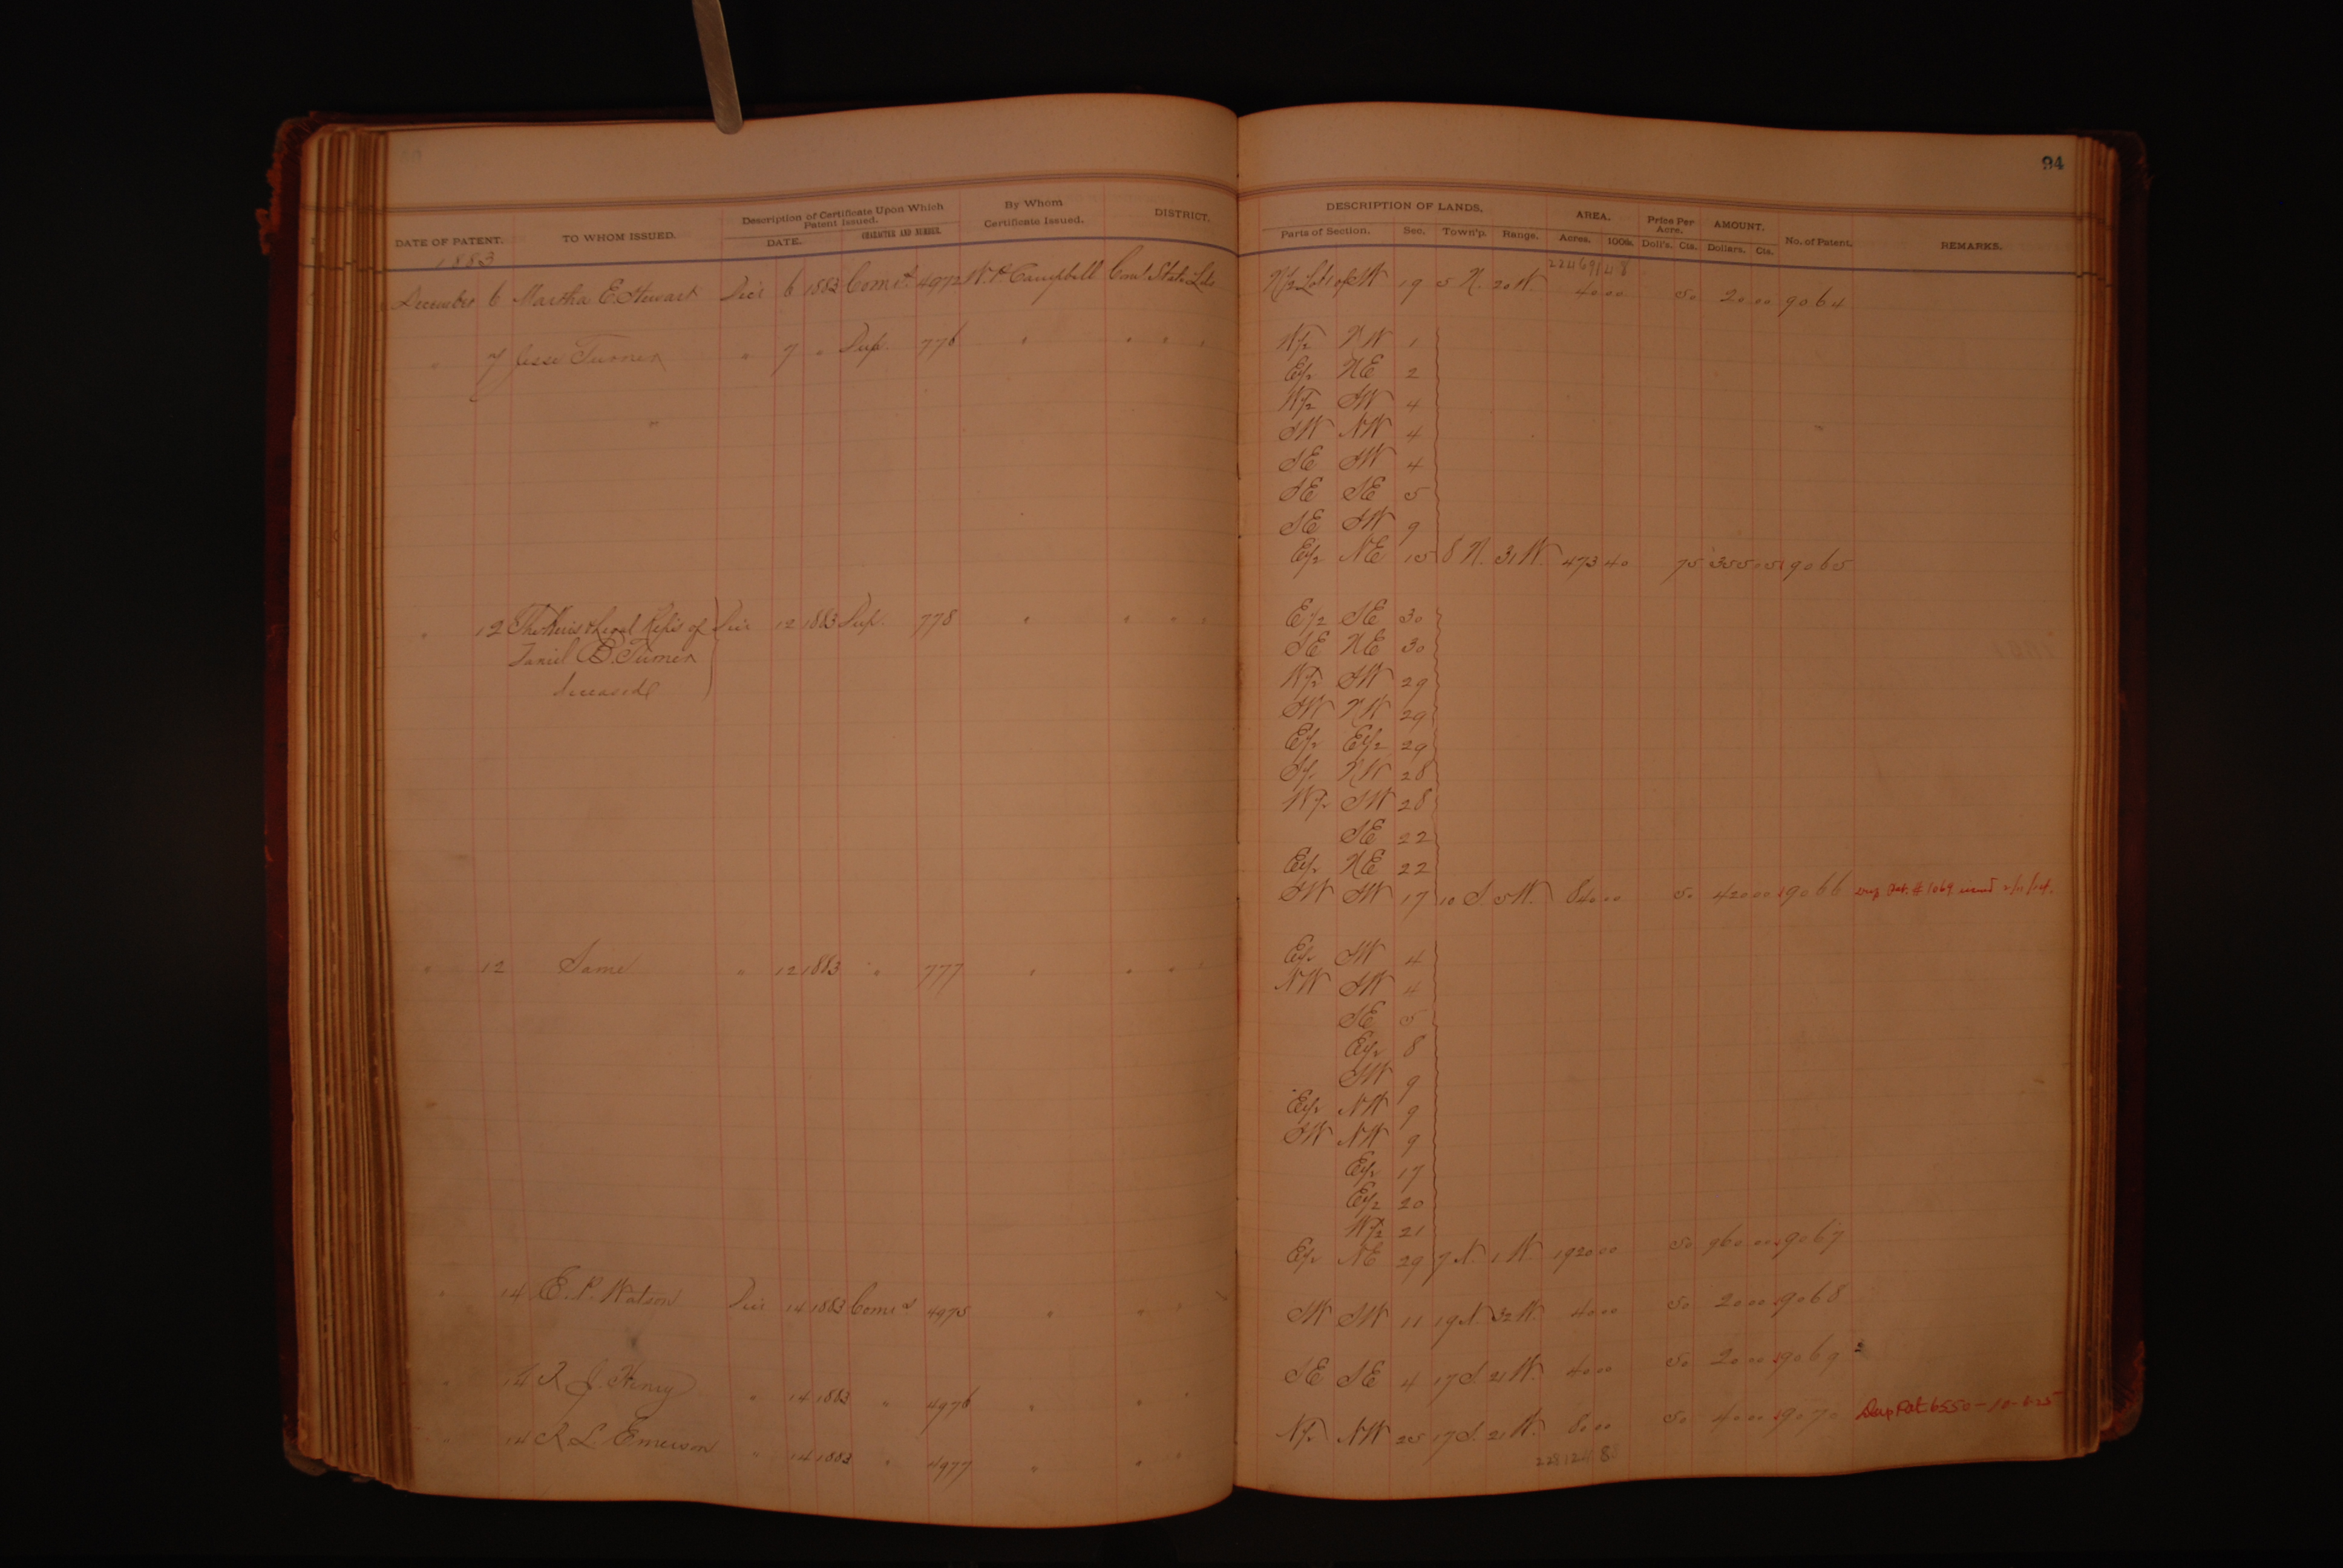 94
DATE OF PATENT. TO WHOM ISSUED. Description of Certificate Upon Which Patent Issued. DATE. CHARACTER AND NUMBER. By Whom Certificate Issued. DISTRICT.
DESCRIPTION OF LANDS. Parts of Section. Sec. Town'p. Range. AREA. Acres. 100s. Price Per Acre. Doll's. Cts. AMOUNT. Dollars. Cts. No. of Patent. REMARKS.
1883
December 6 Martha E. Stewart Dec'r 6 1883 Comr's 4972 W. P. Campbell Com'r State Lds 19 5 N. 20 W. 40 00 50 20 00 9064
" 7 Jesse Turner " 7 " Dup. 776 " " " " W/2 NW 1
E/2 NE 2
W/2 SW 4
SW NW 4
SE SW 4
SE SE 5
SE SW 9
E/2 NE 15 8 N. 31 W. 473 40 75 355 05 9065
" 12 The Heirs & Legal Rep's of Dec'r 12 1883 Dup. 778 " " " " E/2 SE 30
Daniel B. Turner SE NE 30
deceased W/2 SW 29
SW NW 29
E/2 E/2 29
S/2 NW 28
W/2 SW 28
SE 22
E/2 NE 22
SW SW 17 10 S. 5 W. 840 00 50 420 00 9066 Dup Pat. # 1069 issued
" 12 Same " 12 1883 " 777 " " " " E/2 SW 4
NW SW 4
SE 5
E/2 8
SW 9
E/2 NW 9
SW NW 9
E/2 17
E/2 20
W/2 21
E/2 NE 29 7 N. 1 W. 1920 00 50 960 00 9067
" 14 E. P. Watson Dec'r 14 1883 Comr's 4975 " " " SW SW 11 19 N. 32 W. 40 00 50 20 00 9068
" 14 J. Henry " 14 1883 " 4976 " " " SE SE 4 17 S. 21 W. 40 00 50 20 00 9069
" 14 R L Emerson " 14 1883 " 4977 " " " N/2 NW 25 17 S. 21 W. 80 00 50 40 00 9070 Dup Pat 6550-10-6-25